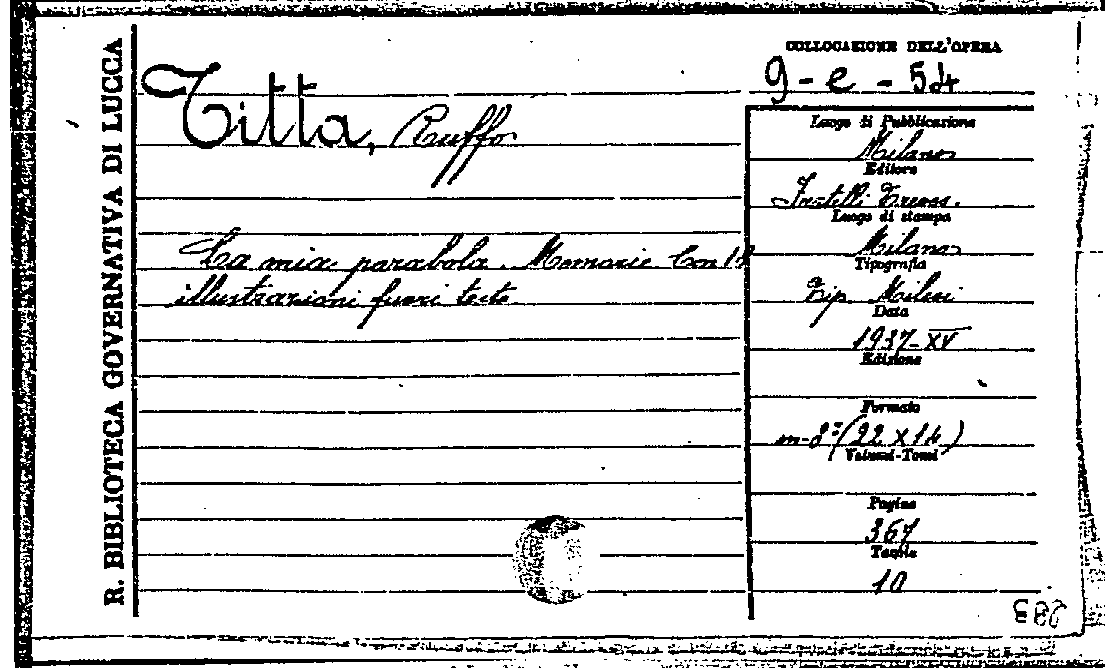 R. BIBLIOTECA GOVERNATIVA DI LUCCA
COLLOCAZIONE DELL'OPERA
9-e-54
Titta, Ruffo
La mia parabola. Memorie Con
illustrazioni fuori testo
Luogo di Pubblicazione
Milano
Editore
Fratelli Treves.
Luogo di stampa
Milano
Tipografia
Tip. Milesi
Data
1937-XV
Edizione
Formato
in-8º (22 x 14)
Volumi-Tomi
Pagine
367
Tavole
10
283